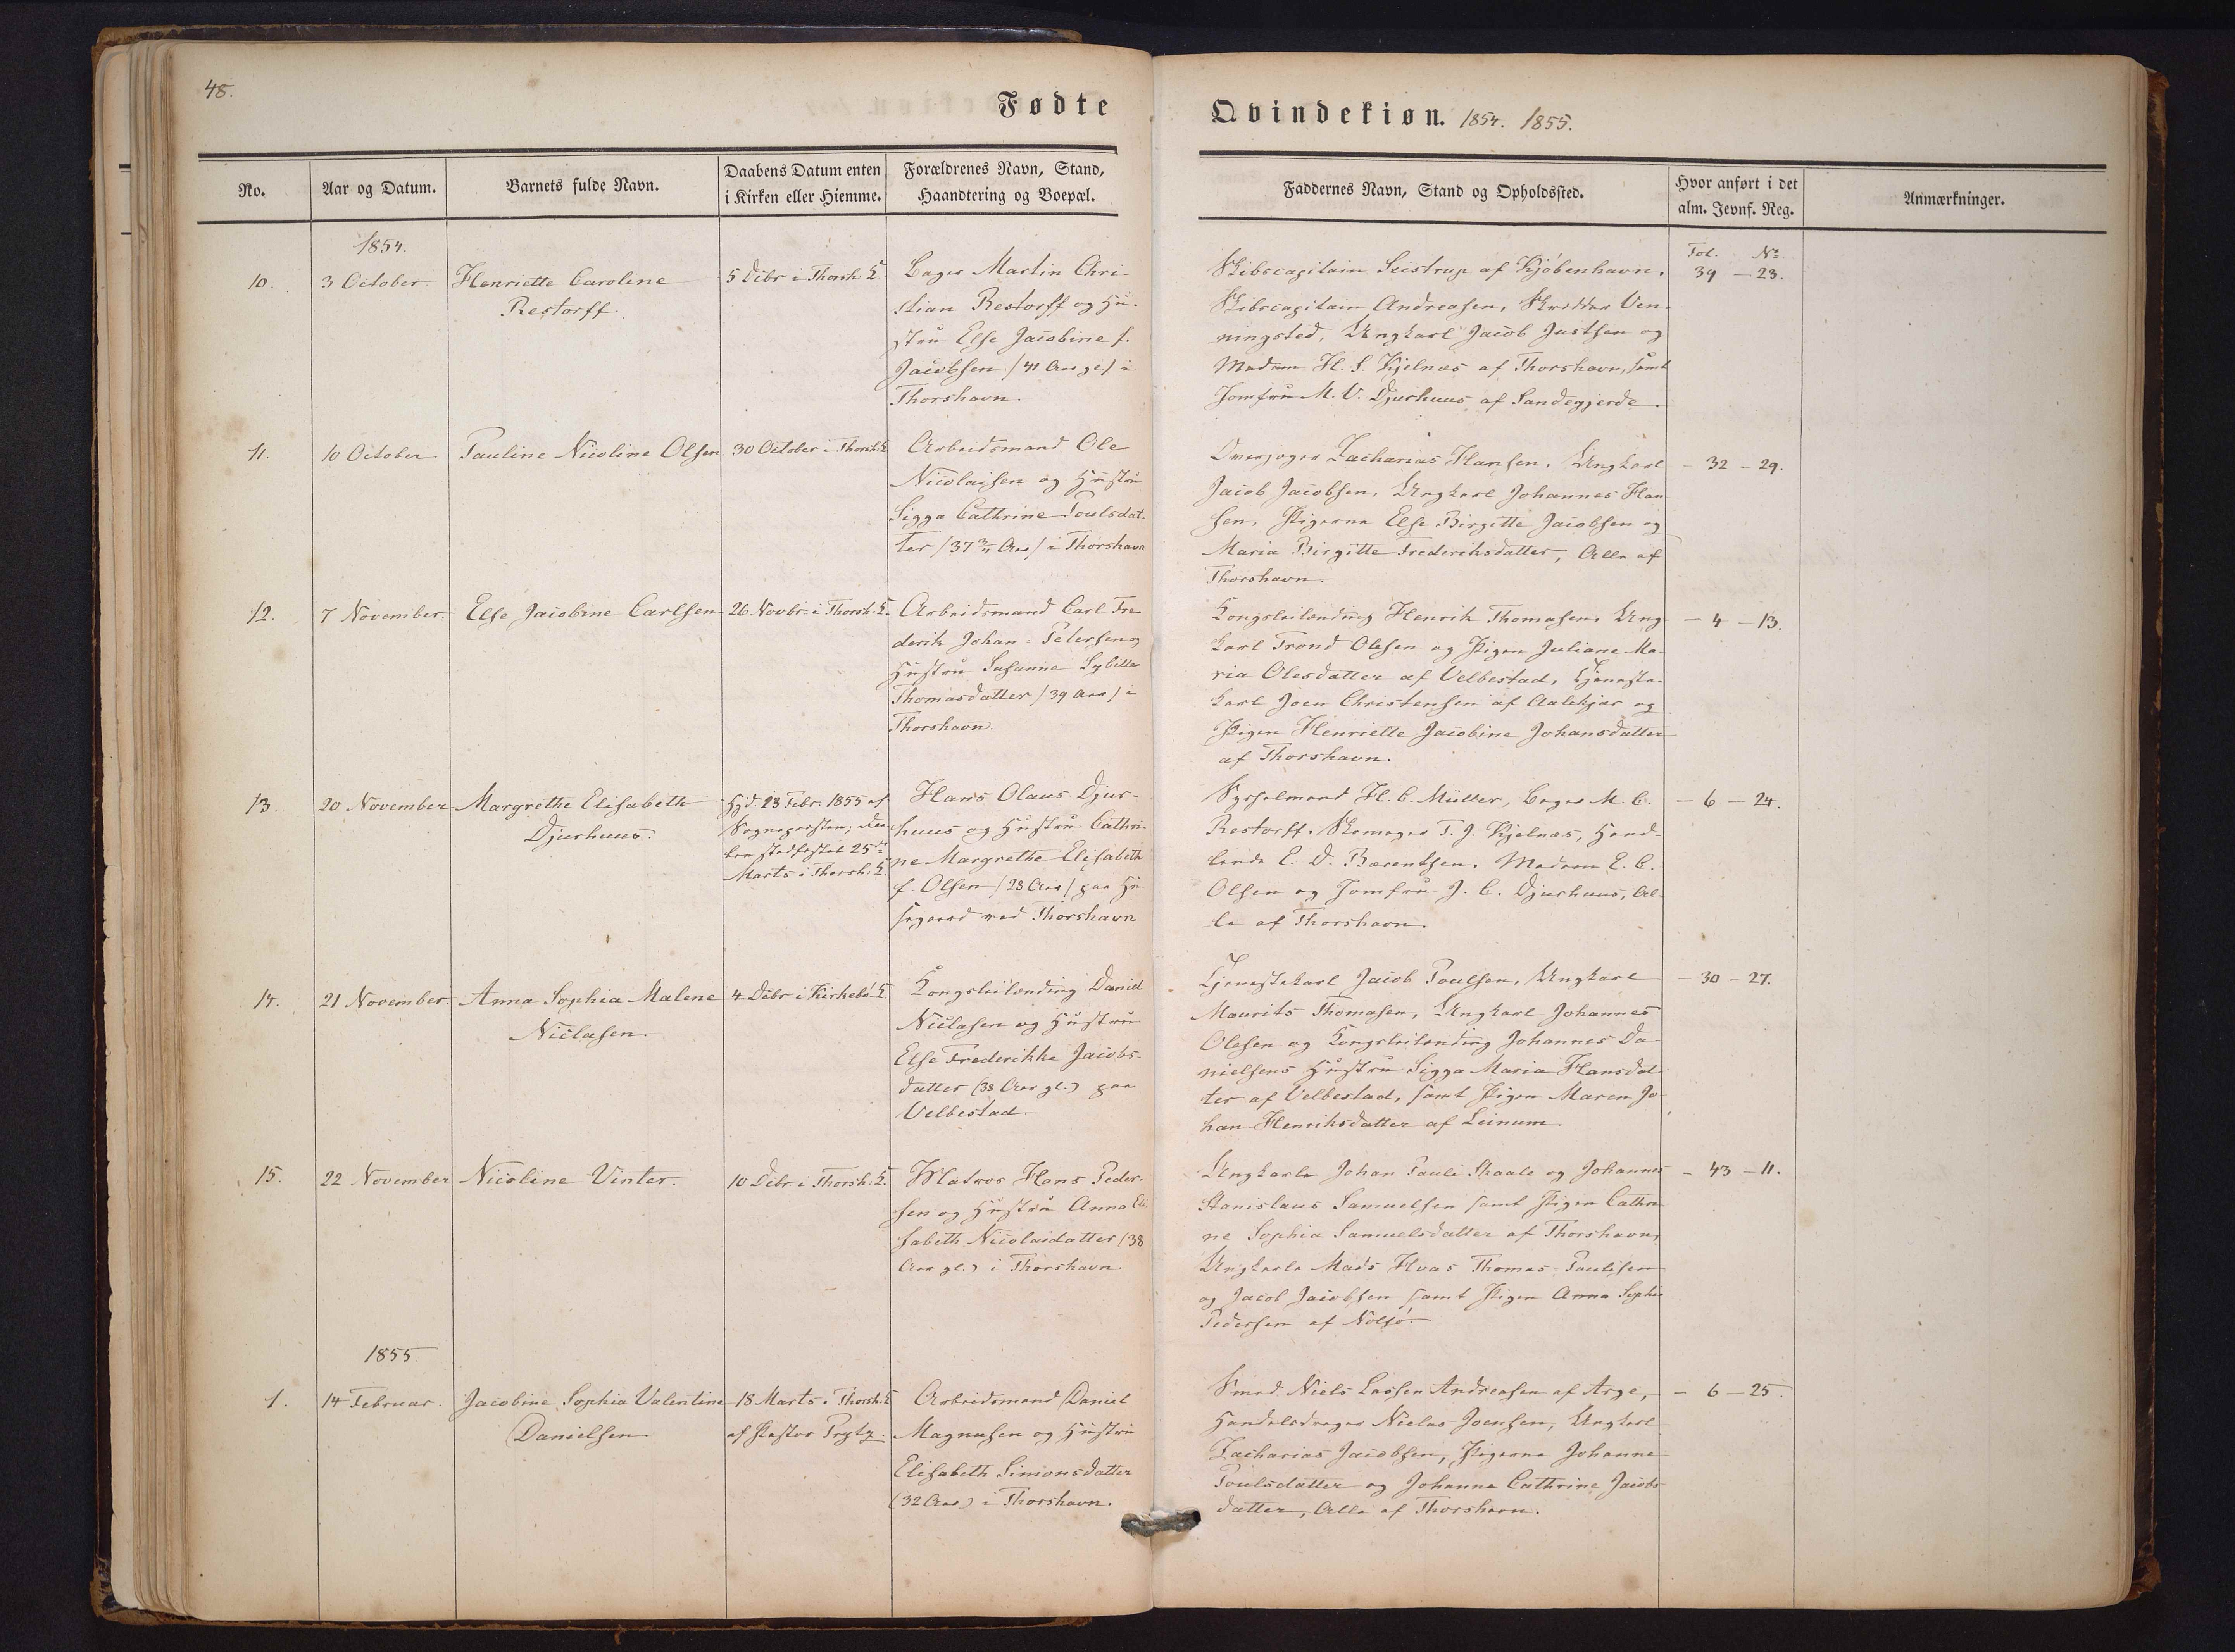 48.
Fødte
Qvindekiøn. 1854. 1855.
No.
Aar og Datum.
Barnets fulde Navn.
Daabens Datum enten
i Kirken eller Hiemme.
Forældrenes Navn, Stand,
Haandtering og Boepæl.
Faddernes Navn, Stand og Opholdssted.
Hvor anført i det
alm. Jevnf. Reg.
Anmærkninger.
1854.
10.
3 October
Henriette Caroline
Restorff.
5 Debr i Thorsh. K.
Bager Martin Chri-
stian Restorff og Hu-
stru Else Jacobine f.
Jacobsen (41 Aar gl) i
Thorshavn.
Skibscapitain Seistrup af Kjøbenhavn,
Skibscapitain Andreasen, Skrædder Ven-
ningsted, Ungkarl Jacob Justsen og
Madam H. S. Kjelnæs af Thorshavn, samt
Jomfru M. V. Djurhuus af Sandegjerde.
Fol. No
39 - 23.
11.
10 October
Pauline Nicoline Olsen
30 October i Thorsh. K.
Arbeidsmand Ole
Nicolaisen og Hustru
Sigga Cathrine Poulsdat-
ter (37 3/4 Aar) i Thorshavn
Zacharias Hansen, Ungkarl
Jacob Jacobsen, Ungkarl Johannes Han-
sen, Pigerne Else Birgitte Jacobsen og
Maria Birgitte Frederiksdatter, Alle af
Thorshavn.
- 32 - 29.
12.
7 November.
Else Jacobine Carlsen
26 Novbr. i Thorsh. K.
Arbeidsmand Carl Fre-
derik Johan Petersen og
Hustru Susanne Sybille
Thomasdatter (39 Aar) i
Thorshavn.
Kongsleilending Henrik Thomasen, Ung-
karl Trond Olesen og Pigen Juliane Ma-
ria Olesdatter af Velbestad, Tjeneste-
karl Joen Christensen af Aalekjær og
Pigen Henriette Jacobine Johansdatter
af Thorshavn.
- 4 - 13.
13.
20 November
Margrethe Elisabeth
Djurhuus.
Hjd. 23 Febr. 1855 af
Sognepræsten; Daa-
ben stadfæstet 25de
Marts i Thorsh. K.
Hans Olaus Djur-
huus og Hustru Cathri-
ne Margrethe Elisabeth
f. Olsen (28 Aar) paa Hu-
segaard ved Thorshavn
Sysselmand H. C. Müller, Bager M. C.
Restorff, Skomager T. J. Kjelnæs, Hand-
lende E. D. Bærentsen, Madam E. C.
Olsen og Jomfru J. C. Djurhuus, Al-
le af Thorshavn.
- 6 - 24.
14.
21 November.
Anna Sophia Malene
Niclasen.
4 Debr i Kirkebø K.
Kongsleilending Daniel
Niclasen og Hustru
Else Frederikke Jacobs-
datter (38 Aar gl.) paa
Velbestad.
Tjenestekarl Jacob Poulsen, Ungkarl
Mourits Thomasen, Ungkarl Johannes
Olesen og Kongsleilending Johannes Da-
nielsens Hustru Sigga Maria Hansdat-
ter af Velbestad, samt Pigen Maren Jo-
han Henriksdatter af Leinum.
- 30 - 27.
15.
22 November
Nicoline Vinter.
10 Debr i Thorsh. K.
Matros Hans Peder-
sen og Hustru Anna Eli-
sabeth Nicolaidatter (38
Aar gl.) i Thorshavn.
Ungkarle Johan Pauli Skaale og Johannes
Stanislaus Samuelsen samt Pigen Cathri-
ne Sophia Samuelsdatter af Thorshavn,
Ungkarle Mads Hvas Thomas Poulisen
og Jacob Jacobsen samt Pigen Anna Sophie
Pedersen af Nolsø.
- 43 - 11.
1855
1.
14 Februar.
Jacobine Sophia Valentine
Danielsen
18 Marts i Thorsh. K.
af Pastor Prytz
Arbeidsmand Daniel
Magnusen og Hustru
Elisabeth Simonsdatter
(32 Aar) i Thorshavn.
Smed Niels Lassen Andreasen af Arge,
Handelsdreger Niclas Joensen, Ungkarl
Zacharias Jacobsen, Pigerne Johanne
Poulsdatter og Johanna Cathrine Jacobs-
datter, Alle af Thorshavn.
- 6 - 25.